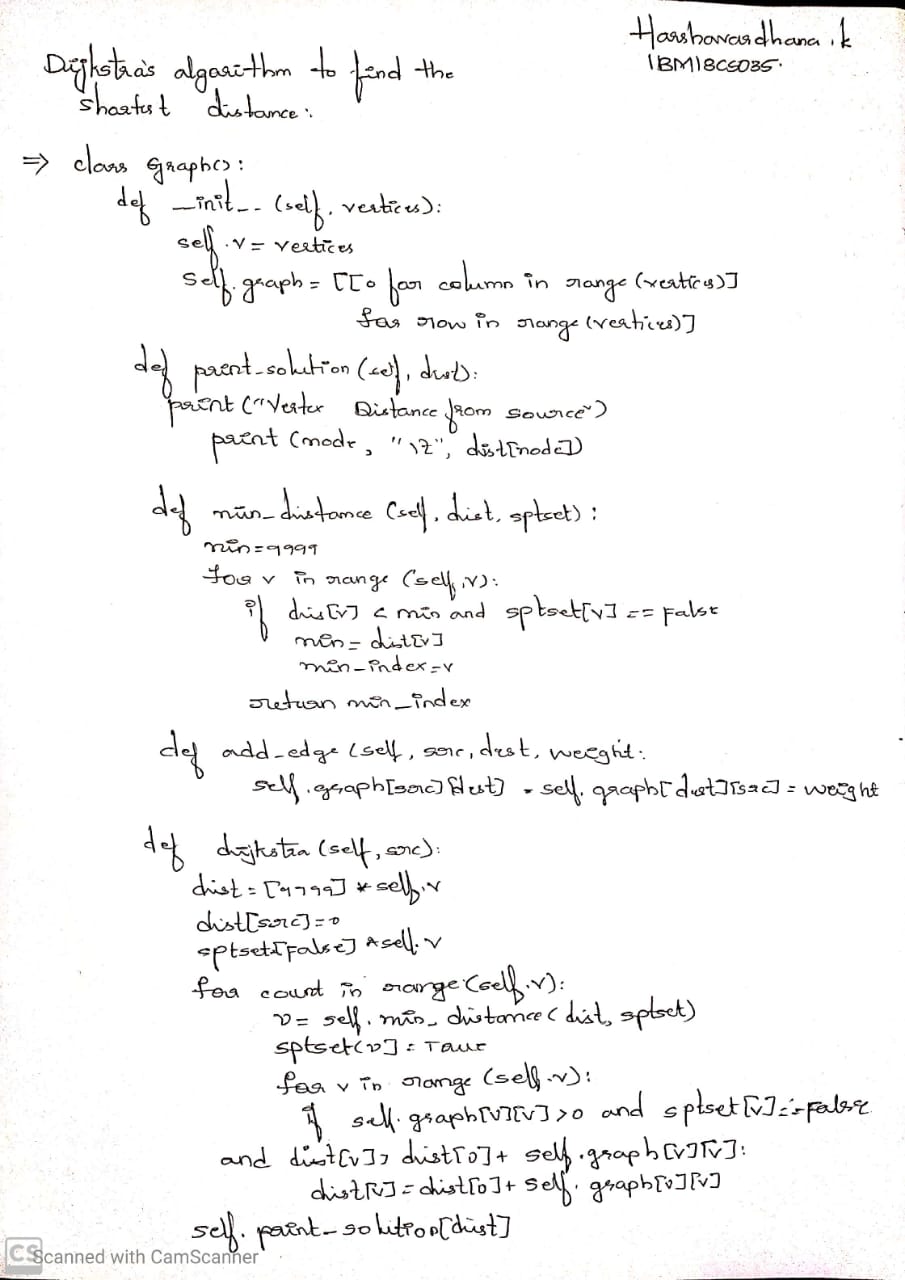 Harshavardhana .k
1BM18CS035.
Dijkstra's algorithm to find the
shortest distance :
⇒ class Graph():
def __init__ (self, vertices):
self.v = vertices
self.graph = [[0 for column in range (vertices)]
for row in range (vertices)]
def print_solution (self, dist):
print ("Vertex Distance from source")
print (node, "\t", dist[node])
def min_distance (self, dist, sptset) :
min = 9999
for v in range (self.v):
if dis[v] < min and sptset[v] == False
min = dist[v]
min_index = v
return min_index
def add_edge (self, src, dest, weight:
self.graph[src][dest] = self.graph[dest][src] = weight
def dijkstra (self, src):
dist = [9999] * self.v
dist[src] = 0
sptset=[False] * self.v
for count in range (self.v):
u = self.min_distance (dist, sptset)
sptset(u] = True
for v in range (self.v):
if self.graph[u][v] > 0 and sptset[v] == False
and dist[v] > dist[u] + self.graph[u][v]:
dist[v] = dist[u] + self.graph[u][v]
self.print_solution[dist]
CS Scanned with CamScanner